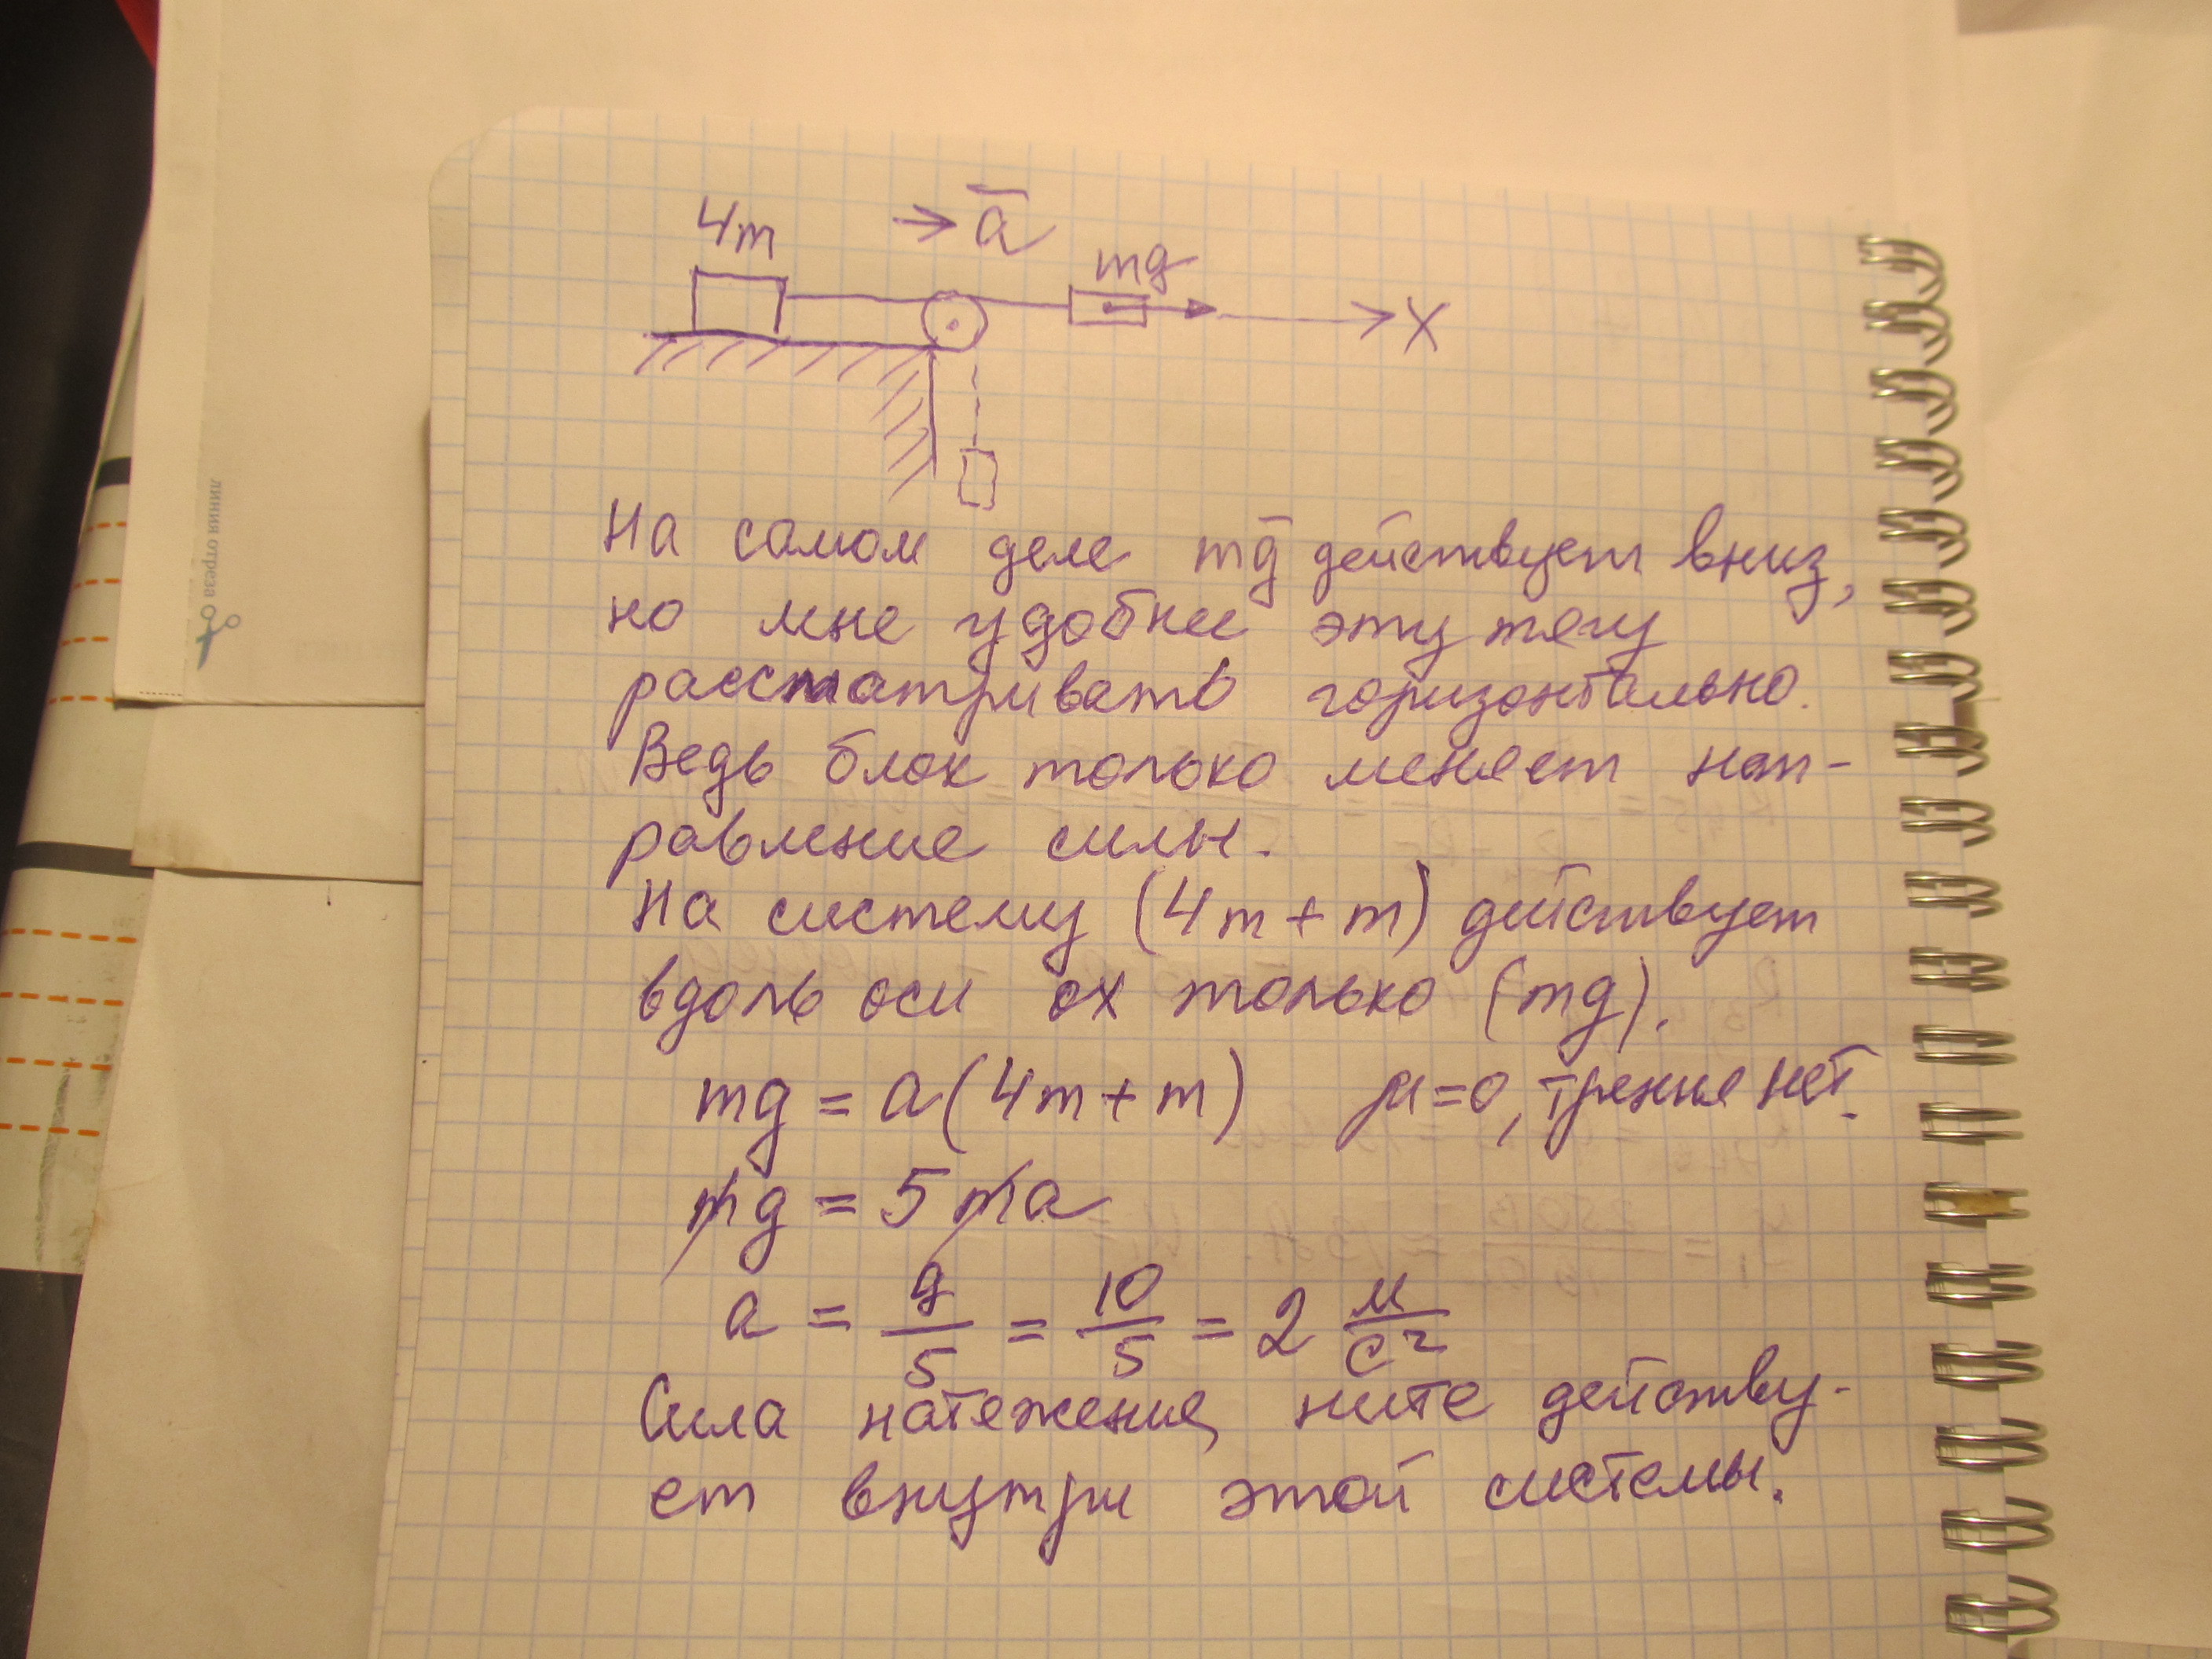 линия отреза
4m
→ a
mg
X
На самом деле mg действует вниз,
но мне удобнее эту тягу
рассматривать горизонтально.
Ведь блок только меняет нап-
равление силы.
На систему (4m + m) действует
вдоль оси ох только (mg).
mg = a(4m + m) μ=0, трения нет.
mg = 5ma
a = g/5 = 10/5 = 2 м/с²
Сила натяжения нити действу-
ет внутри этой системы.